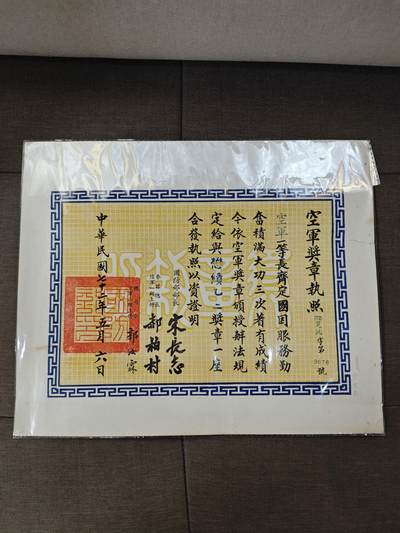 空軍獎章執照
字第
號
空軍一等長齊定國因服務勤
奮積滿大功三次著有成績
今依空軍獎章頒授辦法規
定給與懋績乙二獎章一座
合發執照以資證明
國防部部長 宋長志
郝柏村
郭汝霖
中華民國七十三年五月六日